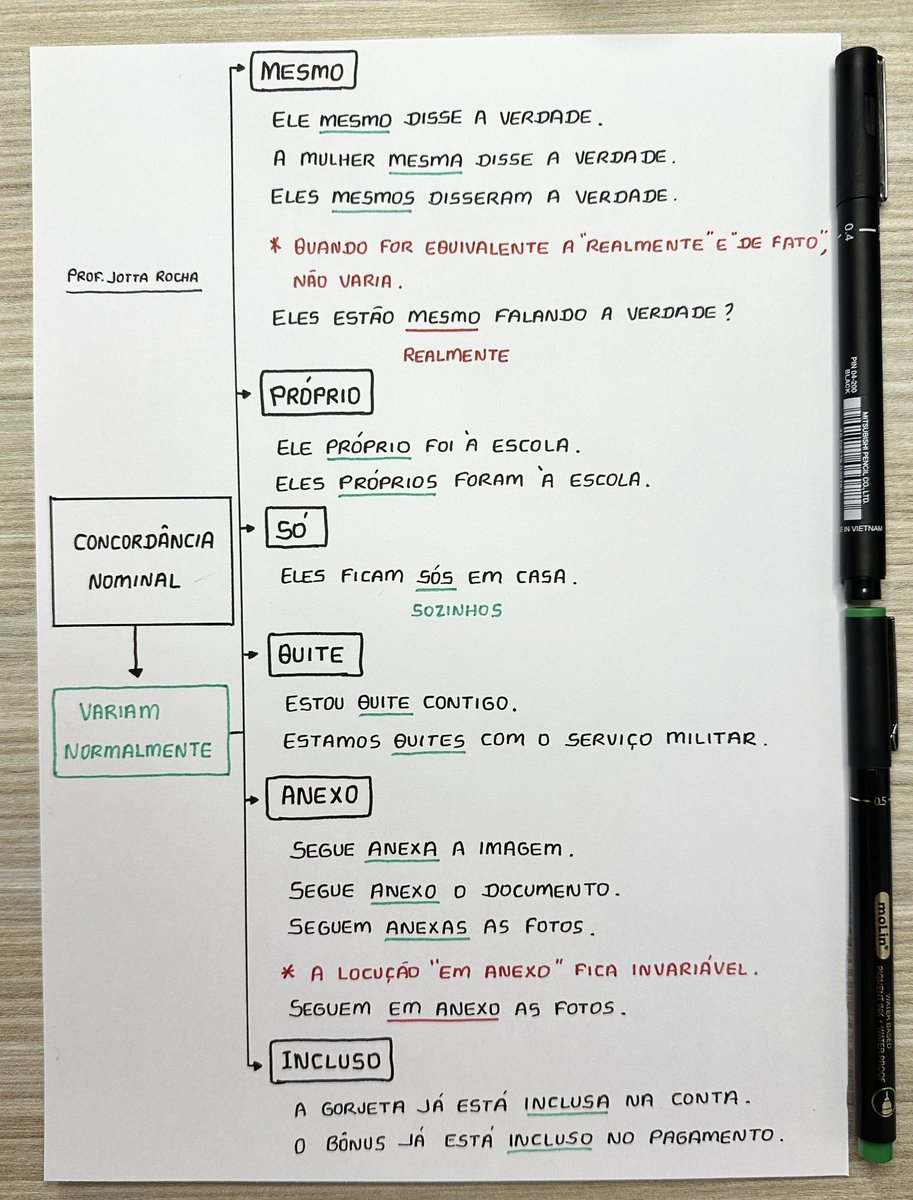 MESMO
ELE MESMO DISSE A VERDADE.
A MULHER MESMA DISSE A VERDADE.
ELES MESMOS DISSERAM A VERDADE.
* QUANDO FOR EQUIVALENTE A "REALMENTE" E "DE FATO",
NÃO VARIA.
ELES ESTÃO MESMO FALANDO A VERDADE?
REALMENTE
PROF. JOTTA ROCHA
PRÓPRIO
ELE PRÓPRIO FOI À ESCOLA.
ELES PRÓPRIOS FORAM À ESCOLA.
CONCORDÂNCIA
NOMINAL
VARIAM
NORMALMENTE
SÓ
ELES FICAM SÓS EM CASA.
SOZINHOS
QUITE
ESTOU QUITE CONTIGO.
ESTAMOS QUITES COM O SERVIÇO MILITAR.
ANEXO
SEGUE ANEXA A IMAGEM.
SEGUE ANEXO O DOCUMENTO.
SEGUEM ANEXAS AS FOTOS.
* A LOCUÇÃO "EM ANEXO" FICA INVARIÁVEL.
SEGUEM EM ANEXO AS FOTOS.
INCLUSO
A GORJETA JÁ ESTÁ INCLUSA NA CONTA.
O BÔNUS JÁ ESTÁ INCLUSO NO PAGAMENTO.
0.4
PIN 04-200
BLACK
MITSUBISHI PENCIL CO., LTD.
E IN VIETNAM
0.5
moLin
PIGMENT INK • WATER PROOF
WATER BASED